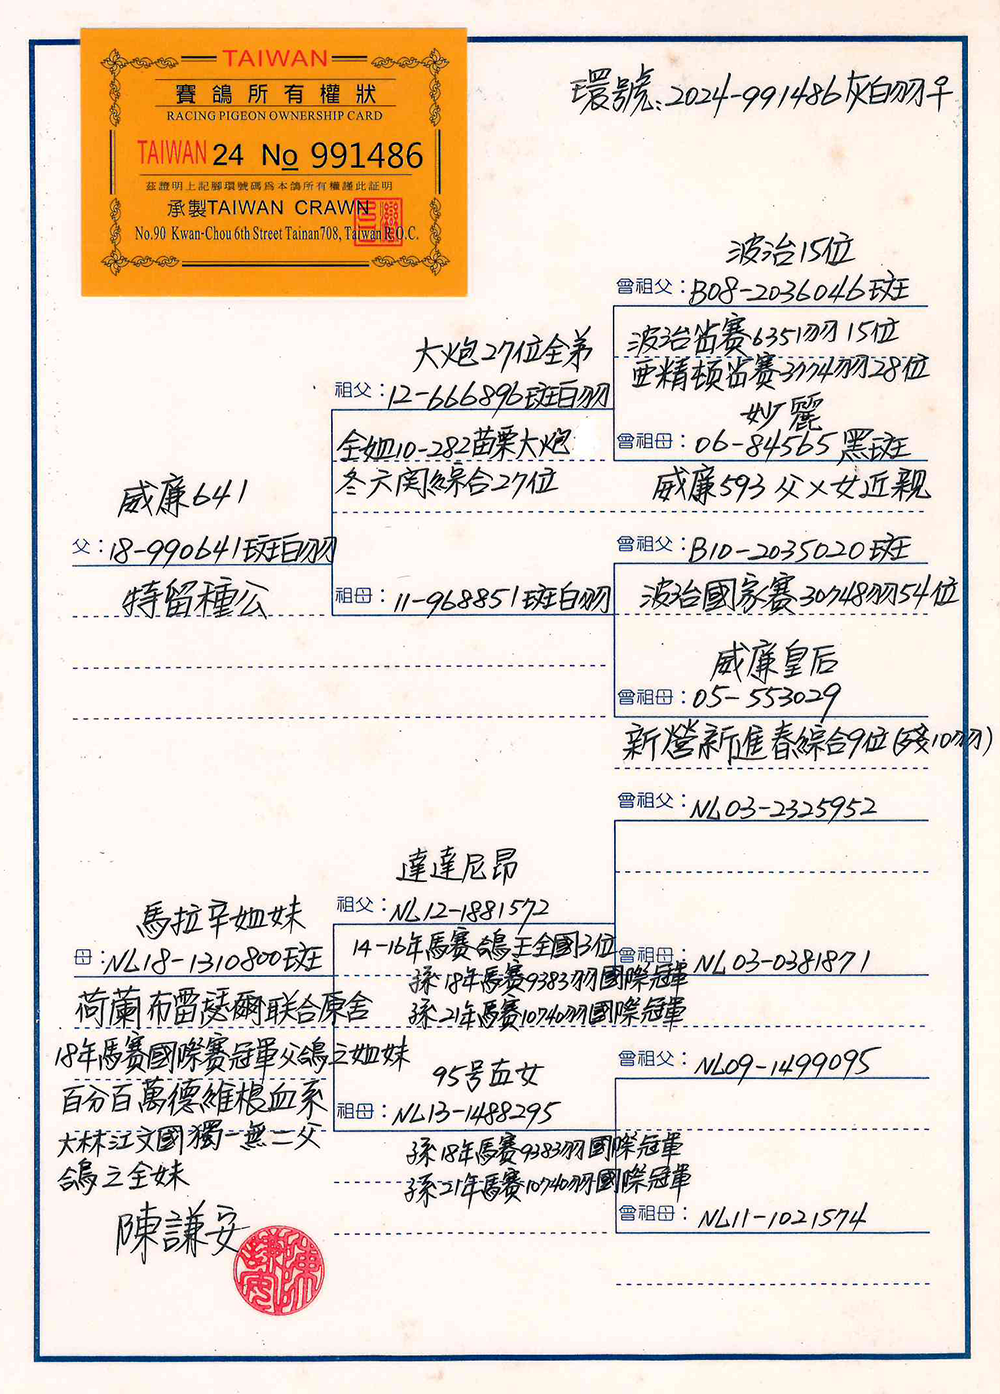 TAIWAN
賽鴿所有權狀
RACING PIGEON OWNERSHIP CARD
TAIWAN 24 No 991486
茲證明上記腳環號碼爲本鴿所有權謹此証明
承製TAIWAN CRAWN
No.90 Kwan-Chou 6th Street Tainan708, Taiwan R.O.C.
環號:2024-991486灰白羽♀
波治15位
曾祖父:B08-2036046斑
波治笛賽6351羽15位
亞精頓笛賽3774羽28位
大炮27位全弟
祖父:12-666896斑白羽
妙麗
曾祖母:06-84565黑斑
全姐10-282苗栗大炮
冬六関綜合27位
威廉593父×女近親
威廉641
父:18-990641斑白羽
特留種公
曾祖父:B10-2035020斑
波治國家賽30748羽54位
祖母:11-968851斑白羽
威廉皇后
曾祖母:05-553029
新營新進春綜合9位(殘10羽)
曾祖父:NL03-2325952
達達尼昂
祖父:NL12-1881572
14-16年馬賽鴿王全國3位
孫18年馬賽9383羽國際冠軍
孫21年馬賽10740羽國際冠軍
曾祖母:NL03-0381871
馬拉辛姐妹
母:NL18-1310800斑
荷蘭布雷瑟爾联合原舍
18年馬賽國際賽冠軍父鴿之姐妹
百分百萬德維根血系
大林江文國獨一無二父
鴿之全妹
曾祖父:NL09-1499095
95号直女
祖母:NL13-1488295
孫18年馬賽9383羽國際冠軍
孫21年馬賽10740羽國際冠軍
曾祖母:NL11-1021574
陳謙安